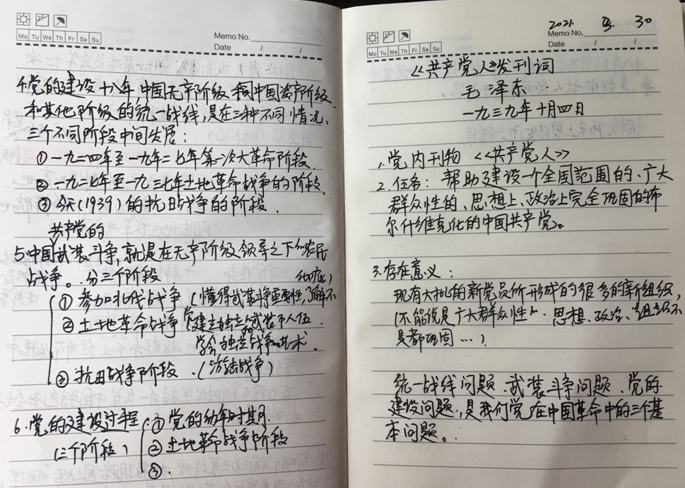 Memo No.
Mo Tu We Th Fr Sa Su
Date / /
党的建设十八年 中国无产阶级同中国资产阶级
和其他阶级的统一战线,是在三种不同情况、
三个不同阶段中间发展:
①一九二四年至一九二七年第一次大革命阶段.
②一九二七年至一九三七年土地革命战争的阶段.
③今天(1939)的抗日战争的阶段.
共产党的
5.中国武装斗争,就是在无产阶级领导之下的农民
战争。分三个阶段
①参加北伐战争(懂得武装斗争重要性,了解不
②土地革命战争 建立独立武装队伍
学会独立战争艺术.
③抗日战争阶段.(游击战争)
6.党的建设过程
(三个阶段)
①党的幼年时期
②土地革命战争阶段
③.
2021. 30
Memo No.
Mo Tu We Th Fr Sa Su
Date / /
《共产党人》发刊词
毛泽东
一九三九年十月四日
1.党内刊物《共产党人》
2.任务:帮助建设一个全国范围的、广大
群众性的、思想上、政治上完全巩固的布
尔什维克化的中国共产党。
3.存在意义:
现有大批的新党员所形成的很多的新组织,
(不能说是广大群众性的、思想、政治、组织不
是都巩固...)
统一战线问题、武装斗争问题、党的
建设问题,是我们党在中国革命中的三个基
本问题。